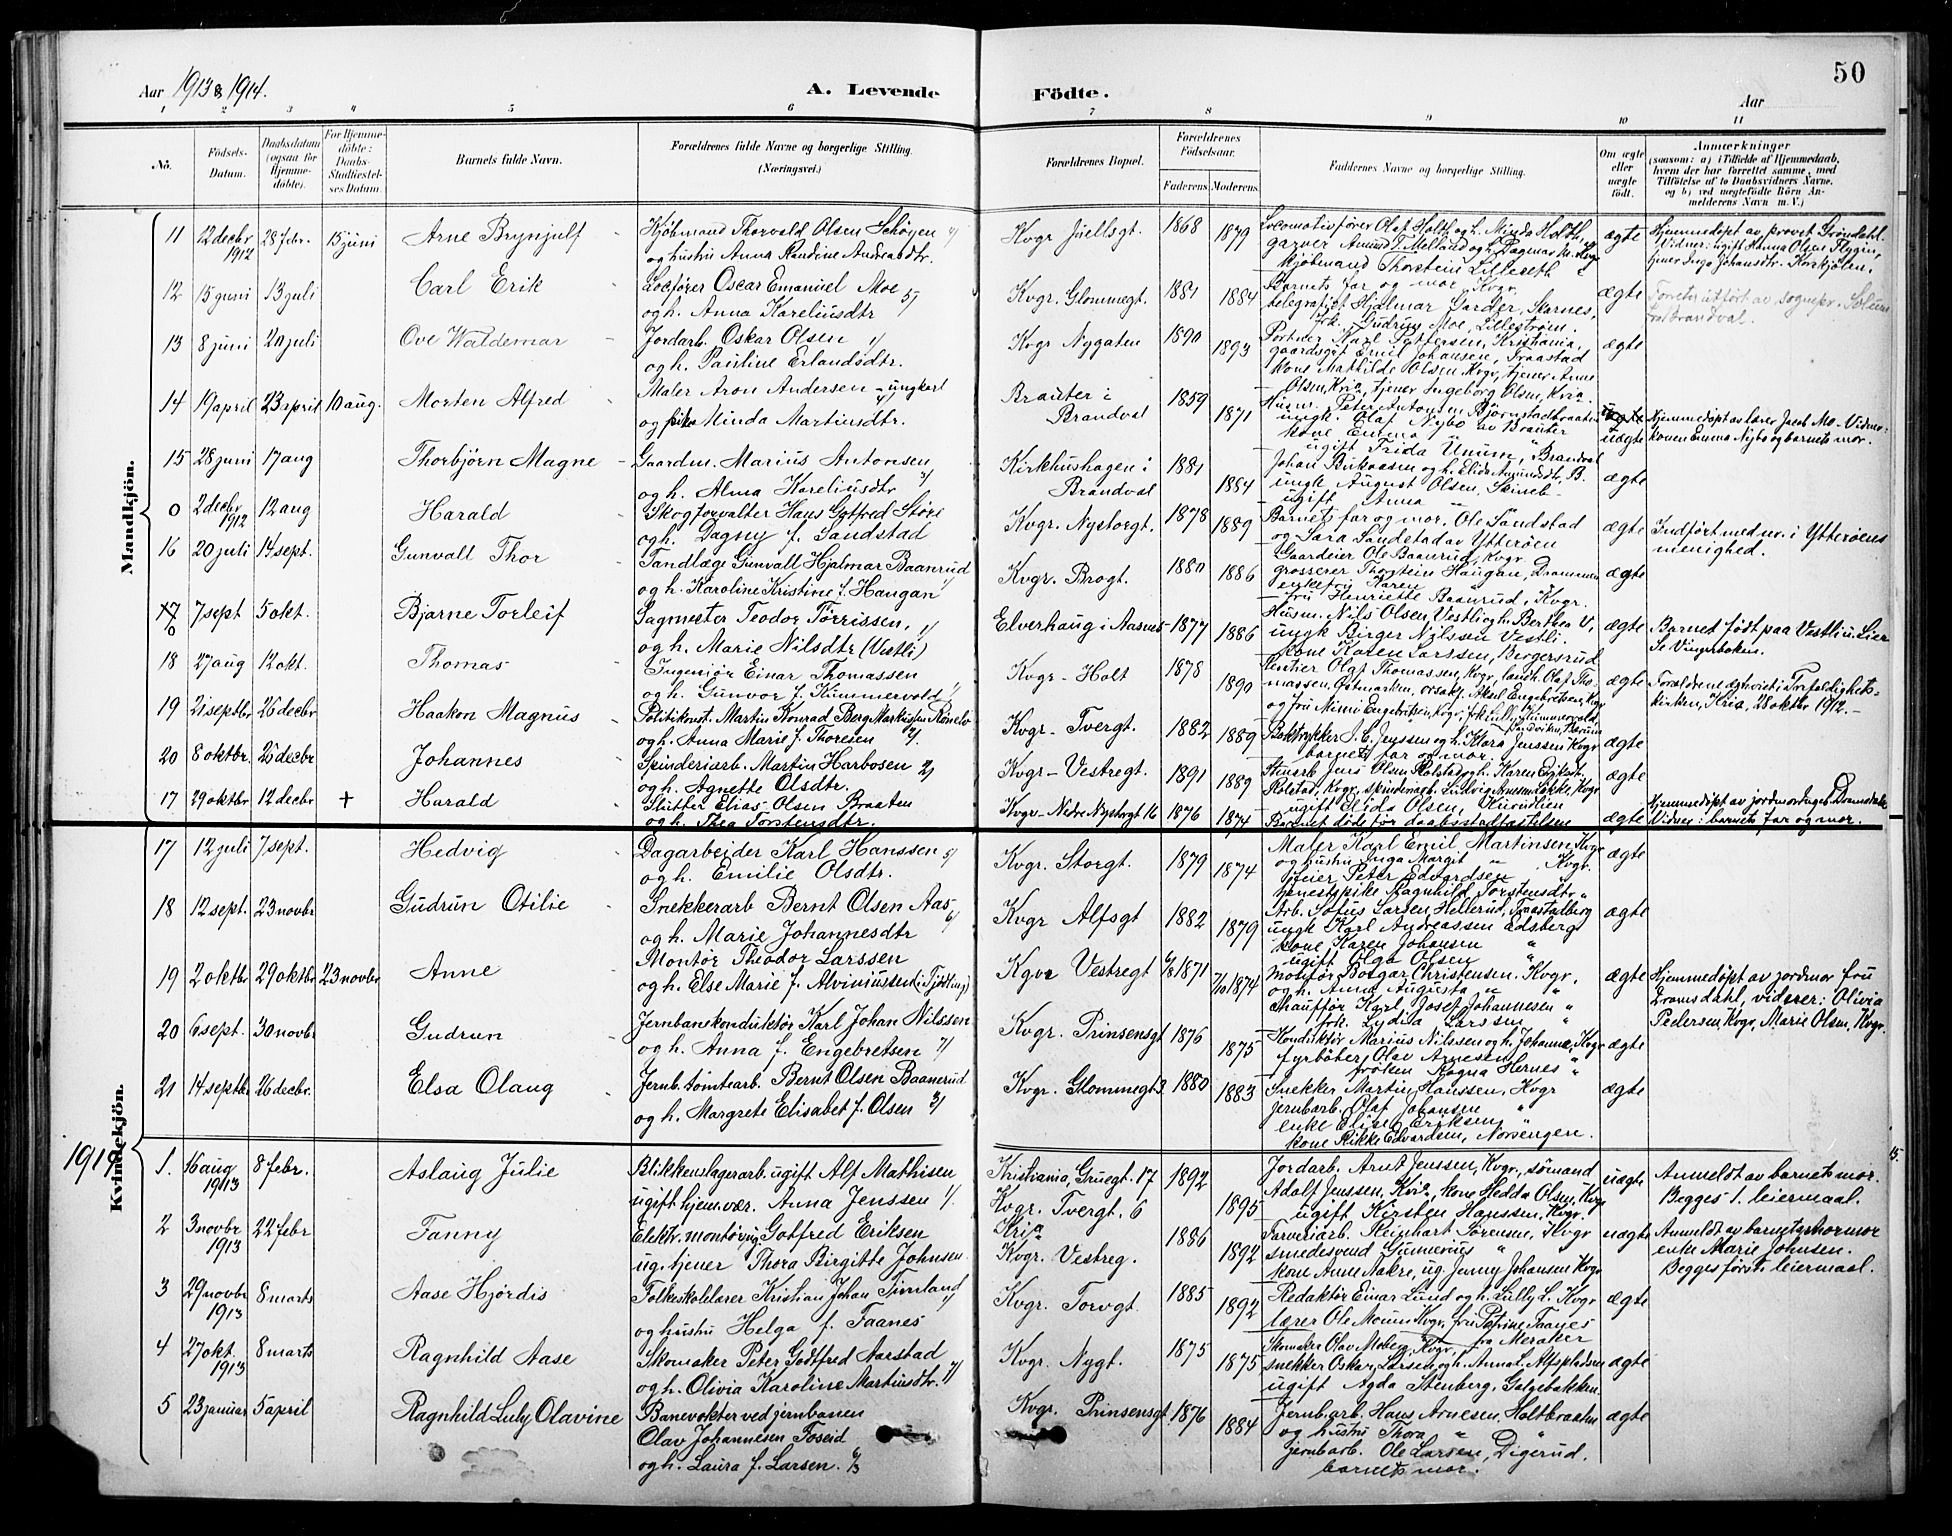 50
Aar 1913 & 1914. A. Levende Födte. Aar
1 2 3 4 5 6 7 8 9 10 11
No.
Födsels-Datum.
Daabsdatum (ogsaa for Hjemme-döbte).
For Hjemme-döbte: Daabs-Stadfæstel-ses Datum.
Barnets fulde Navn.
Forældrenes fulde Navne og borgerlige Stilling. (Næringsvei.)
Forældrenes Bopæl.
Forældrenes Födselsaar.
Faderens. Moderens.
Faddernes Navne og borgerlige Stilling.
Om ægte eller uægte födt.
Anmærkninger (saasom: a) i Tilfælde af Hjemmedaab, hvem der har forrettet samme, med Tilföielse af to Daabsvidners Navne, og b) ved uægtefödte Börn An-melderens Navn m. V.)
Mandkjön.
11 12 decbr 1912 28 febr. 15 juni Arne Brynjulf Kjøbmand Thorvald Olsen Schøyen
og hustru Anna Randine Andreasdtr.
Kvgr Juellsgt. 1868 1879 Locomotivfører Olaf Holth og h. Minda Holth,
garver Amund T. Melland og h. Dagmar M. Kvgr
kjøbmand Thorstein Lilleseth
ægte Hjemmedøpt av provst Grøndahl.
Vidner: ugift Hanna Olsen Flygin,
tjener Inga Johansdtr. Korskjølen.
12 15 juni 13 juli Carl Erik Lokfører Oscar Emanuel Moe 5/
og h. Anna Kareliusdtr
Kvgr. Glommegt. 1881 1884 Barnets far og mor. Kvgr.
telegrafist Hjalmar Garder, Skarnes,
frk. Gudrun Moe, Lillestrøm.
ægte Forretn. utført av sognepr. Solum
fra Brandval.
13 8 juni 20 juli Ove Waldemar Jordarb. Oskar Olsen 1/
og h. Pauline Erlandsdtr.
Kvgr Nygaten 1890 1893 Portner Karl Pettersen, Kristiania,
gaardsgut Emil Johansen, Fraastad
kone Mathilde Olsen Kvgr, tjener Anne
Olsen, Kria, tjener Ingeborg Olsen, Kria.
ægte
14 19 april 23 april 10 aug. Morten Alfred Maler Aron Andersen - ungkarl
og pike Minda Martinsdtr.
Brauter i Brandval 1859 1871 Husm. Peter Antonsen Bjørnstadbraaten
ungk. Olaf Nybo av Brauter
kone Emma "
ugift Frida Unum, Brandval
uægte Hjemmedøpt av lærer Jacob Mo - Vidner:
konen Emma Nybo og barnets mor.
15 28 juni 17 aug Thorbjørn Magne Gaardm. Marius Antonsen
og h. Alma Kareliusdtr
Kirkhushagen i Brandval 1881 1884 Johan Birkaasen og h. Elida Amundsdtr, B.
ungk August Olsen, Skineb-
ugift Anna "
ægte
0 2 decbr 1912 12 aug Harald Skogforvalter Hans Gotfred Støre
og h. Dagny f. Sandstad
Kvgr. Nystorgt. 1878 1889 Barnets far og mor. Ole Sandstad
og Sara Sandstad av Ytterøen
ægte Indført med nr. i Ytterøens
menighed.
16 20 juli 14 sept. Gunvall Thor Tandlæge Gunvall Hjalmar Baanrud
og h. Karoline Kristine f. Haugan
Kvgr. Brogt. 1880 1886 Gaardeier Ole Baanrud, Kvgr.
grosserer Thorstein Haugan, Drammen
enkefru Karen "
fru Henriette Baanrud, Kvgr.
ægte
17 0 7 sept 5 okt. Bjarne Torleif Sagmester Teodor Tørrissen, 1/
og h. Marie Nilsdtr (Vestli)
Elverhaug i Aasnes 1877 1886 Husm. Nils Olsen, Vestli og h. Berthea V,
ungk Birger Nilssen Vestli.
kone Karen Larssen, Bergersrud
ægte Barnet født paa Vestli u. Lier
Se Vingerboken.
18 27 aug 12 okt. Thomas Ingeniør Einar Thomassen
og h. Gunvor f. Kimmervold 1/
Kvgr - Holt 1878 1890 Rentier Olaf Thomassen, Kvgr, landh. Olaf Tho-
massen, Østmarken, orsakf. Aksel Engebretsen, Kvgr
og fru Mimi Engebretsen, Kvgr,
ægte Forældrene egtviet i Trefoldigheds-
kirken, Kria, 28 oktbr 1912.-
19 21 septbr 26 decbr Haakon Magnus Politikonst. Martin Konrad Berg Markussen
og h. Anna Marie f. Thoresen 2/
Kvgr - Tvergt. 1882 1889 Boktrykker J. C. Jenssen og h. Klara Jenssen Kvgr
barnets far og mor.
ægte
20 8 oktbr. 26 decbr Johannes Spinderiarb. Martin Harbosen 2/
og h. Agnette Olsdtr.
Kvgr - Vestregt. 1891 1889 Stenarb Jens Olsen Rolstad og h. Karen
Rolstad, Kvgr, spinderiarb. Ludvig Arnesen Løkke, Kvgr
ugift Elida Olsen,
ægte
17 29 oktbr 12 decbr + Harald Slutter Elias Olsen Braaten
og h. Thea Torstensdtr.
Kvgr - Nedre Nystorgt 16 1876 1874 Barnet døde før daabsstadfæstelsen
ægte Hjemmedøpt av jordmor Ingeb. Dramsdahl
Vidner: barnets far og mor.
Kvindekjön.
17 12 juli 7 sept. Hedvig Dagarbeider Karl Hanssen 5/
og h. Emilie Olsdtr.
Kvgr. Storgt. 1879 1874 Maler Karl Emil Martinsen, Kvgr
og hustru Inga Margit " Kvgr.
Peter Edvardsen,
tjenestepike Ragnhild Torstensdtr "
ægte
18 12 sept. 23 novbr Gudrun Otilie Snekkerarb Bernt Olsen Aas 6/
og h. Marie Johannesdtr
Kvgr Alfsgt 1882 1879 Arb. Sofus Larsen, Hellerud, Fraastadberg
ungk Karl Andreassen Edsberg
kone Karen Johansen "
ugift Olga Olsen "
ægte
19 2 oktbr 29 oktbr 23 novbr Anne Montør Theodor Larssen
og h. Else Marie f. Alviniussen
Kgvr Vestregt 6/8 1871 7/10 1874 Motefør Borgar Christensen, Kvgr.
og h. Anna Augusta " "
Chauffør Karl Josef Johannesen "
frk. Lydia Larssen "
ægte Hjemmedøpt av jordmor fru
Dramsdahl, vidner: Olivia
Pedersen, Kvgr, Marie Olsen, Kvgr.
20 6 sept. 30 novbr Gudrun Jernbanekonduktør Karl Johan Nilssen
og h. Anna f. Engebretsen 7/
Kvgr. Prinsensgt 1876 1875 Konduktør Marius Nilssen og h. Johanne, Kvgr
fyrbøter Olav Arnesen "
frøken Ragna Hernes "
ægte
21 14 septbr 26 decbr. Elsa Olaug Jernb. tømterarb. Bernt Olsen Baanerud
og h. Margrete Elisabet f. Olsen 3/
Kvgr. Glommegt 3 1880 1883 Snekker Martin Hanssen, Kvgr
jernbarb. Olaf Johansen "
enke Elise Eriksen "
kone Rikke Edvardsen, Norvengen.
ægte
1914
1. 16 aug 1913 8 febr. Aslaug Julie Blikkenslagerarb. ugift Alf Mathisen
ugift hjemvær. Anna Jenssen 1/.
Kristiania, Gruegt. 17
Kvgr. Tvergt. 6 1892 1895 Jordarb. Arnt Jenssen, Kvgr., sømand
Adolf Jenssen, Kria, kone Hedda Olsen, Kvgr
ugift Kirsten Hanssen, Kvgr.
uægte Anmeldt av barnets mor.
Begges 1. leiermaal.
2 3 novbr 1913 22 febr Fanny Elektr. montør ug. Gotfred Eriksen
ug. tjener Thora Birgitte Johnsen
Kria
Kvgr. Vestreg. 1886 1892 Farveriarb. Reinhart Sørensen, Kvgr
smedesvend Gunnerius "
kone Anne Nakre, ug. Jenny Johansen Kvgr
uægte Anmeldt av barnets mormor
enke Marie Johnsen.
Begges første leiermaal.
3 29 novbr 1913 8 marts Aase Hjørdis Folkeskolelærer Kristian Johan Timland 1/
og hustru Helga f. Faanes
Kvgr. Torvgt. 1885 1892 Redaktør Einar Lund og h. Lully L. Kvgr
lærer Ole Moum Kvgr, fru Petrine Faanes
fra Meraker
ægte
4 27 okt. 1913 8 marts Ragnhild Aase Skomaker Peter Godtfred Aarstad
og h. Olivia Karoline Martinsdtr. 7/
Kvgr. Nygt. 1875 1875 Skomaker Olav Moberg, Kvgr,
snekker Oskar Larsen og h. Anna L. Alfspladsen
ugift Agda Stenberg, Galgebakken.
ægte
5 23 januar 5 april Ragnhild Luly Olavine Banevokter ved jernbanen
Olav Johannesen Foseid
og h. Laura f. Larsen. 6/3
Kvgr. Prinsensgt 1876 1884 Jernb. arb. Hans Arnesen, Holtbraaten
og hustru Thora " "
jernbarb. Ole Larsen, Digerud.
barnets mor.
ægte
15.